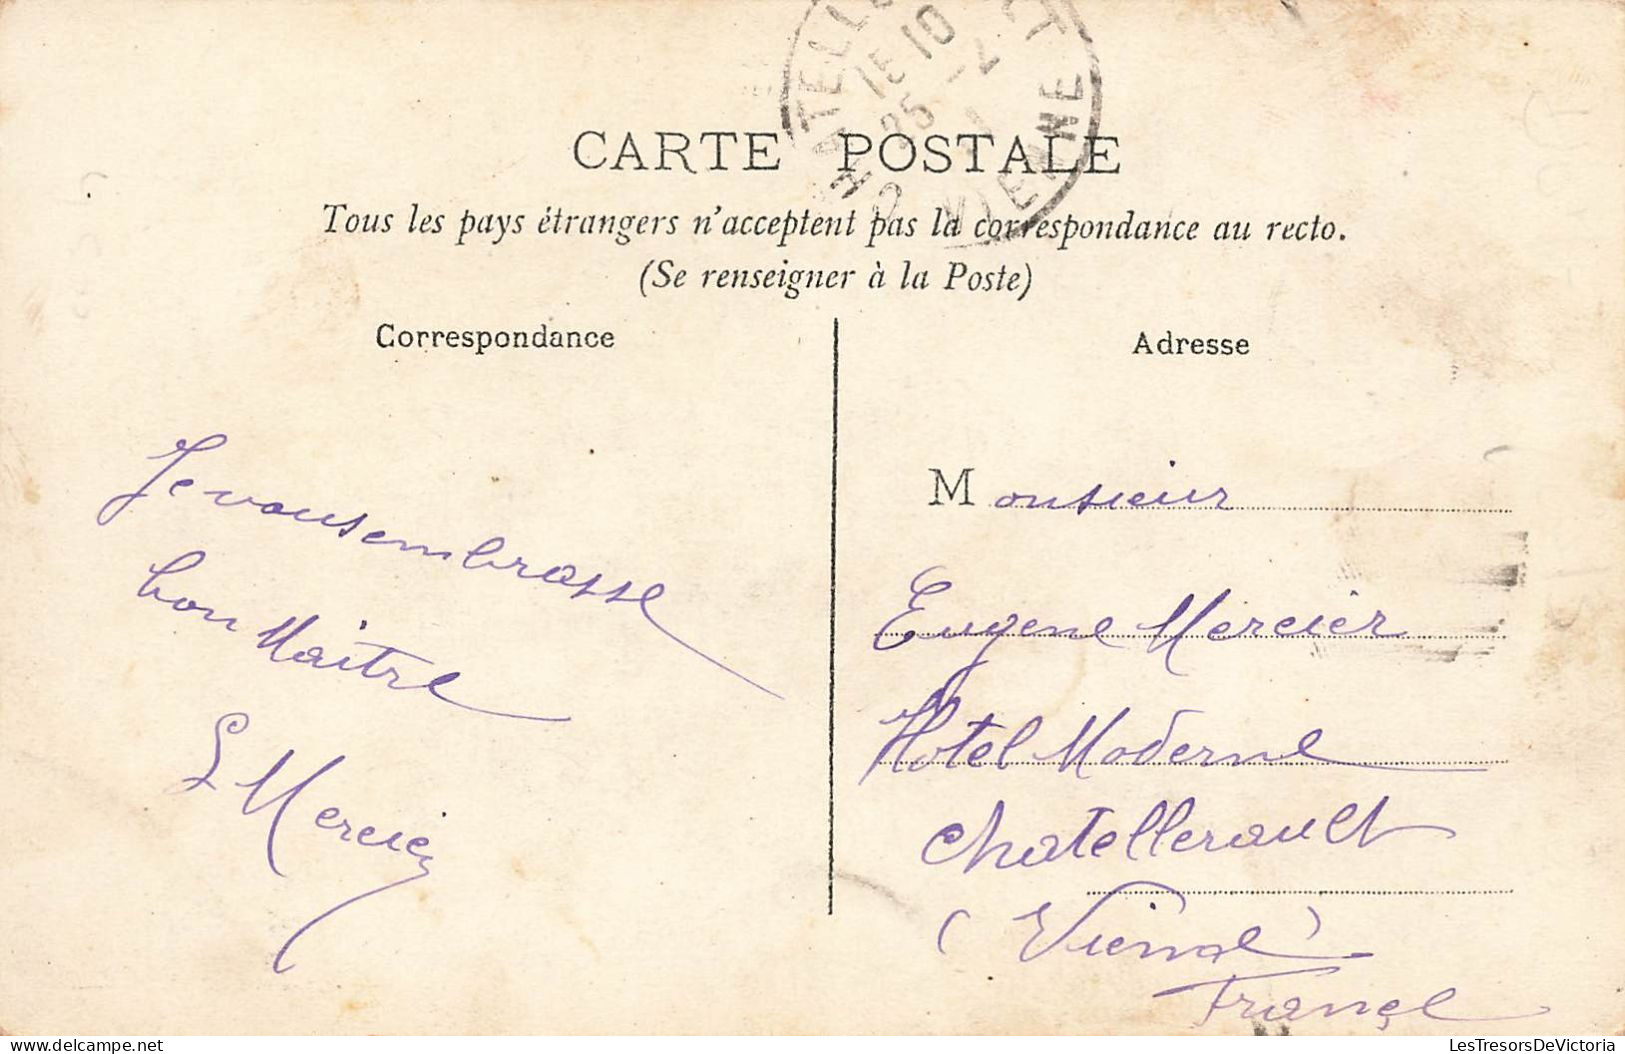 15 10
25
VIENNE
CARTE POSTALE
Tous les pays étrangers n'acceptent pas la correspondance au recto.
(Se renseigner à la Poste)
Correspondance
Je vous embrasse
bon Maitre
E Mercier
Adresse
Monsieur
Eugene Mercier
Hotel Moderne
Chatellerault
(Vienne)
France
LesTresorsDeVictoria